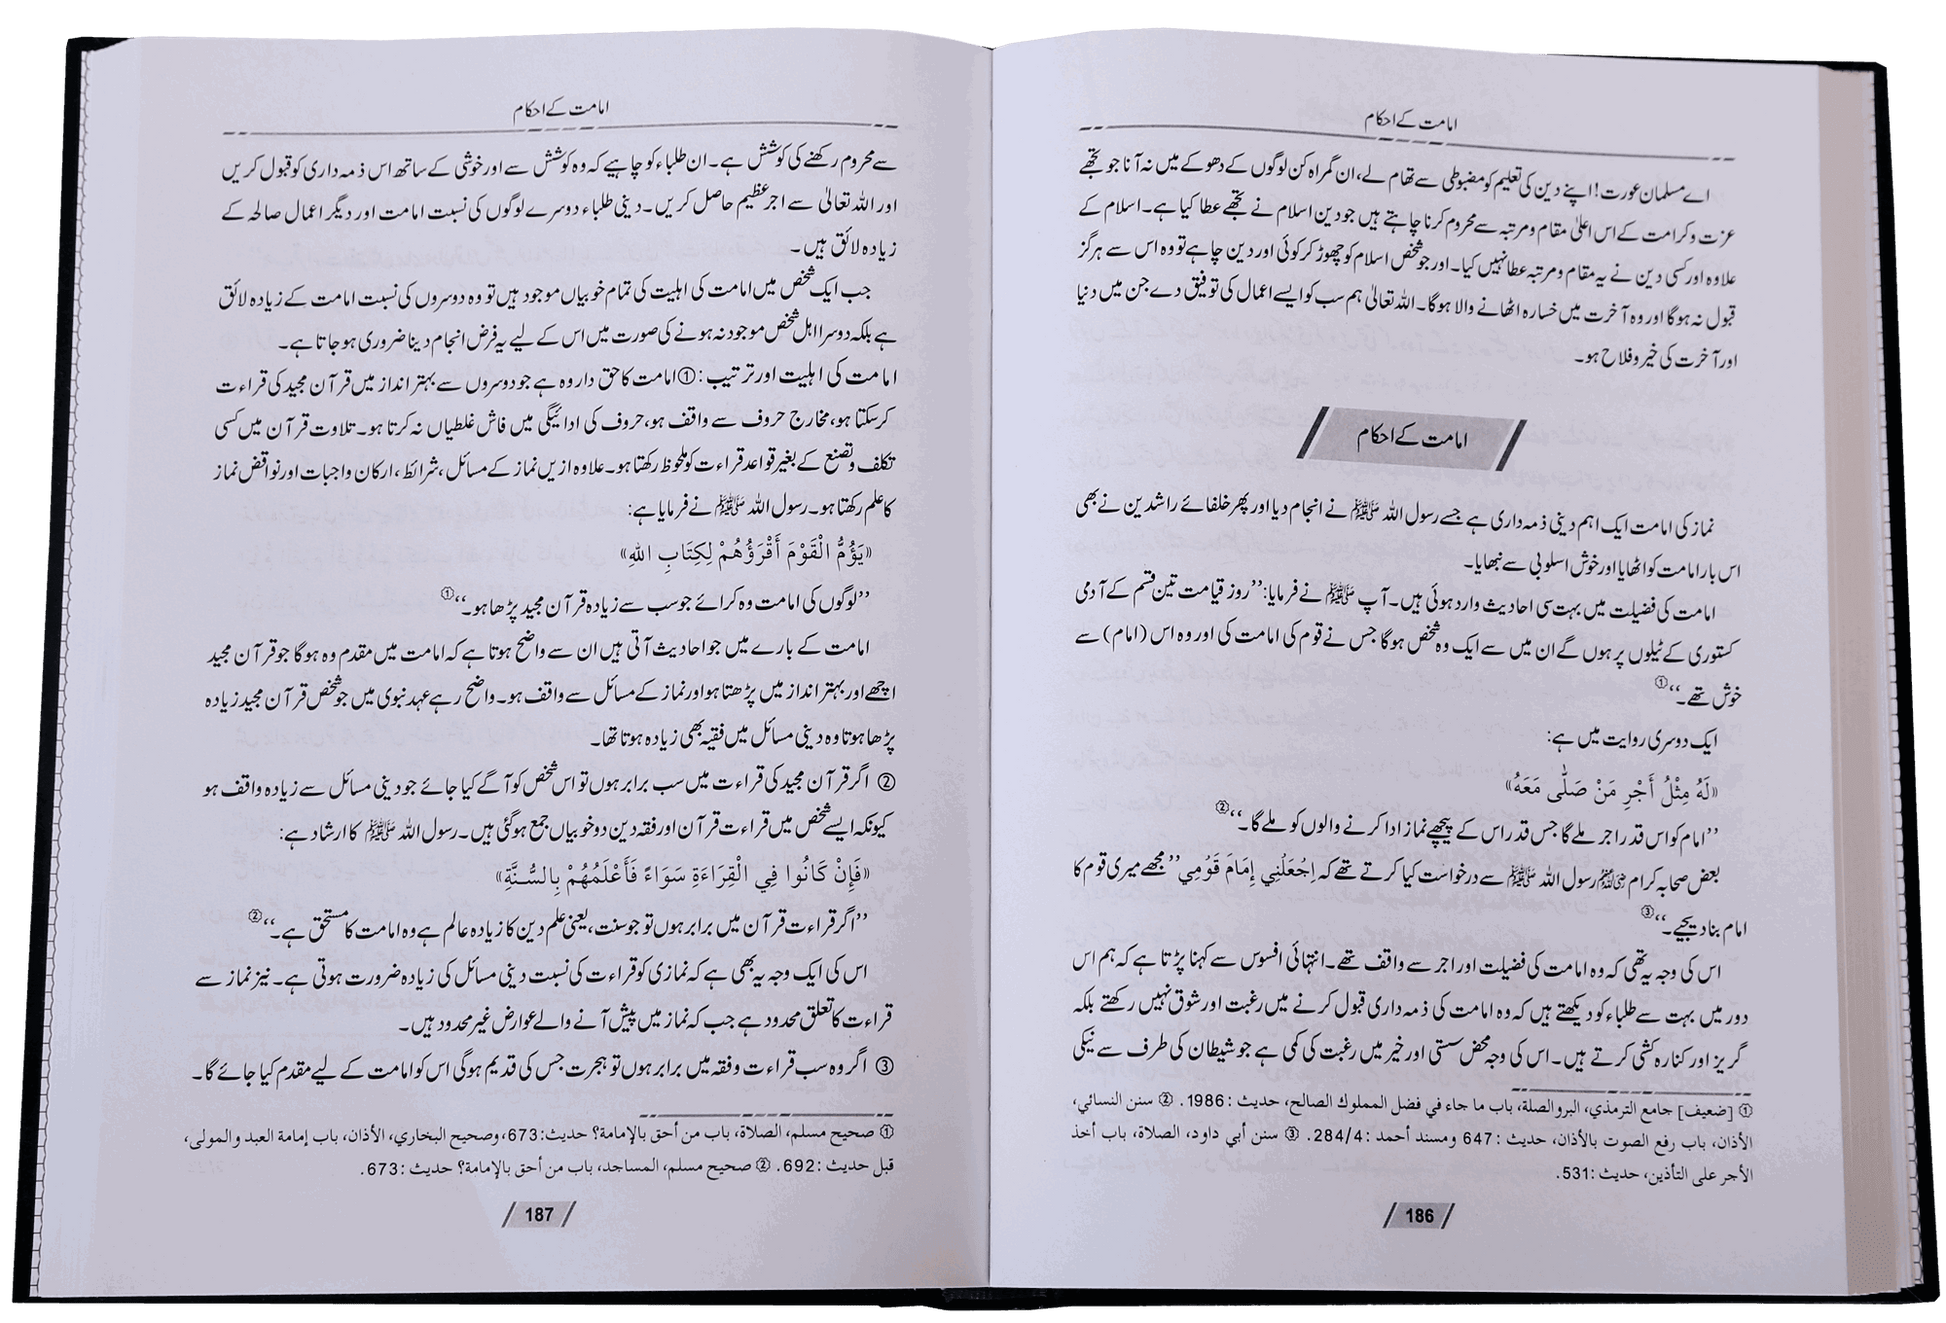 امامت کے احکام
اے مسلمان عورت! اپنے دین کی تعلیم کو مضبوطی سے تھام لے، ان گمراہ کن لوگوں کے دھوکے میں نہ آنا جو تجھے
عزت و کرامت کے اس اعلیٰ مقام و مرتبہ سے محروم کرنا چاہتے ہیں جو دین اسلام نے تجھے عطا کیا ہے۔ اسلام کے
علاوہ اور کسی دین نے یہ مقام و مرتبہ عطا نہیں کیا۔ اور جو شخص اسلام کو چھوڑ کر کوئی اور دین چاہے تو وہ اس سے ہرگز
قبول نہ ہوگا اور وہ آخرت میں خسارہ اٹھانے والا ہوگا۔ اللہ تعالیٰ ہم سب کو ایسے اعمال کی توفیق دے جن میں دنیا
اور آخرت کی خیر و فلاح ہو۔
امامت کے احکام
نماز کی امامت ایک اہم دینی ذمہ داری ہے جسے رسول اللہ ﷺ نے انجام دیا اور پھر خلفائے راشدین نے بھی
اس بار امامت کو اٹھایا اور خوش اسلوبی سے نبھایا۔
امامت کی فضیلت میں بہت سی احادیث وارد ہوئی ہیں۔ آپ ﷺ نے فرمایا: ’’روز قیامت تین قسم کے آدمی
کستوری کے ٹیلوں پر ہوں گے ان میں سے ایک وہ شخص ہوگا جس نے قوم کی امامت کی اور وہ اس (امام) سے
خوش تھے۔‘‘①
ایک دوسری روایت میں ہے:
«لَهُ مِثْلُ أَجْرِ مَنْ صَلّٰى مَعَهُ»
’’امام کو اس قدر اجر ملے گا جس قدر اس کے پیچھے نماز ادا کرنے والوں کو ملے گا۔‘‘②
بعض صحابہ کرام رضی اللہ عنہم رسول اللہ ﷺ سے درخواست کیا کرتے تھے کہ اِجْعَلْنِي إِمَامَ قَوْمِي ’’مجھے میری قوم کا
امام بنا دیجیے۔‘‘③
اس کی وجہ یہ تھی کہ وہ امامت کی فضیلت اور اجر سے واقف تھے۔ انتہائی افسوس سے کہنا پڑتا ہے کہ ہم اس
دور میں بہت سے طلباء کو دیکھتے ہیں کہ وہ امامت کی ذمہ داری قبول کرنے میں رغبت اور شوق نہیں رکھتے بلکہ
گریز اور کنارہ کشی کرتے ہیں۔ اس کی وجہ محض سستی اور خیر میں رغبت کی کمی ہے جو شیطان کی طرف سے نیکی
① [ضعيف] جامع الترمذي، البر والصلة، باب ما جاء في فضل المملوك الصالح، حديث: 1986. ② سنن النسائي،
الأذان، باب رفع الصوت بالأذان، حديث: 647 ومسند أحمد: 284/4. ③ سنن أبي داود، الصلاة، باب أخذ
الأجر على التأذين، حديث: 531.
186
امامت کے احکام
سے محروم رکھنے کی کوشش ہے۔ ان طلباء کو چاہیے کہ وہ کوشش سے اور خوشی کے ساتھ اس ذمہ داری کو قبول کریں
اور اللہ تعالیٰ سے اجر عظیم حاصل کریں۔ دینی طلباء دوسرے لوگوں کی نسبت امامت اور دیگر اعمال صالحہ کے
زیادہ لائق ہیں۔
جب ایک شخص میں امامت کی اہلیت کی تمام خوبیاں موجود ہیں تو وہ دوسروں کی نسبت امامت کے زیادہ لائق
ہے بلکہ دوسرا اہل شخص موجود نہ ہونے کی صورت میں اس کے لیے یہ فرض انجام دینا ضروری ہو جاتا ہے۔
امامت کی اہلیت اور ترتیب: ① امامت کا حق دار وہ ہے جو دوسروں سے بہتر انداز میں قرآن مجید کی قراءت
کر سکتا ہو، مخارج حروف سے واقف ہو، حروف کی ادائیگی میں فاش غلطیاں نہ کرتا ہو۔ تلاوت قرآن میں کسی
تکلف و تصنع کے بغیر قواعد قراءت کو ملحوظ رکھتا ہو۔ علاوہ ازیں نماز کے مسائل، شرائط، ارکان واجبات اور نواقض نماز
کا علم رکھتا ہو۔ رسول اللہ ﷺ نے فرمایا ہے:
«يَؤُمُّ الْقَوْمَ أَقْرَؤُهُمْ لِكِتَابِ اللهِ»
’’لوگوں کی امامت وہ کرائے جو سب سے زیادہ قرآن مجید پڑھا ہو۔‘‘①
امامت کے بارے میں جو احادیث آتی ہیں ان سے واضح ہوتا ہے کہ امامت میں مقدم وہ ہوگا جو قرآن مجید
اچھے اور بہتر انداز میں پڑھتا ہو اور نماز کے مسائل سے واقف ہو۔ واضح رہے عہد نبوی میں جو شخص قرآن مجید زیادہ
پڑھا ہوتا وہ دینی مسائل میں فقیہ بھی زیادہ ہوتا تھا۔
② اگر قرآن مجید کی قراءت میں سب برابر ہوں تو اس شخص کو آگے کیا جائے جو دینی مسائل سے زیادہ واقف ہو
کیونکہ ایسے شخص میں قراءت قرآن اور فقہ دین دو خوبیاں جمع ہوگئی ہیں۔ رسول اللہ ﷺ کا ارشاد ہے:
«فَإِنْ كَانُوا فِي الْقِرَاءَةِ سَوَاءً فَأَعْلَمُهُمْ بِالسُّنَّةِ»
’’اگر قراءت قرآن میں برابر ہوں تو جو سنت، یعنی علم دین کا زیادہ عالم ہے وہ امامت کا مستحق ہے۔‘‘②
اس کی ایک وجہ یہ بھی ہے کہ نمازی کو قراءت کی نسبت دینی مسائل کی زیادہ ضرورت ہوتی ہے۔ نیز نماز سے
قراءت کا تعلق محدود ہے جب کہ نماز میں پیش آنے والے عوارض غیر محدود ہیں۔
③ اگر وہ سب قراءت و فقہ میں برابر ہوں تو ہجرت جس کی قدیم ہوگی اس کو امامت کے لیے مقدم کیا جائے گا۔
① صحيح مسلم، الصلاة، باب من أحق بالإمامة؟ حديث: 673، وصحيح البخاري، الأذان، باب إمامة العبد والمولى،
قبل حديث: 692. ② صحيح مسلم، المساجد، باب من أحق بالإمامة؟ حديث: 673.
187